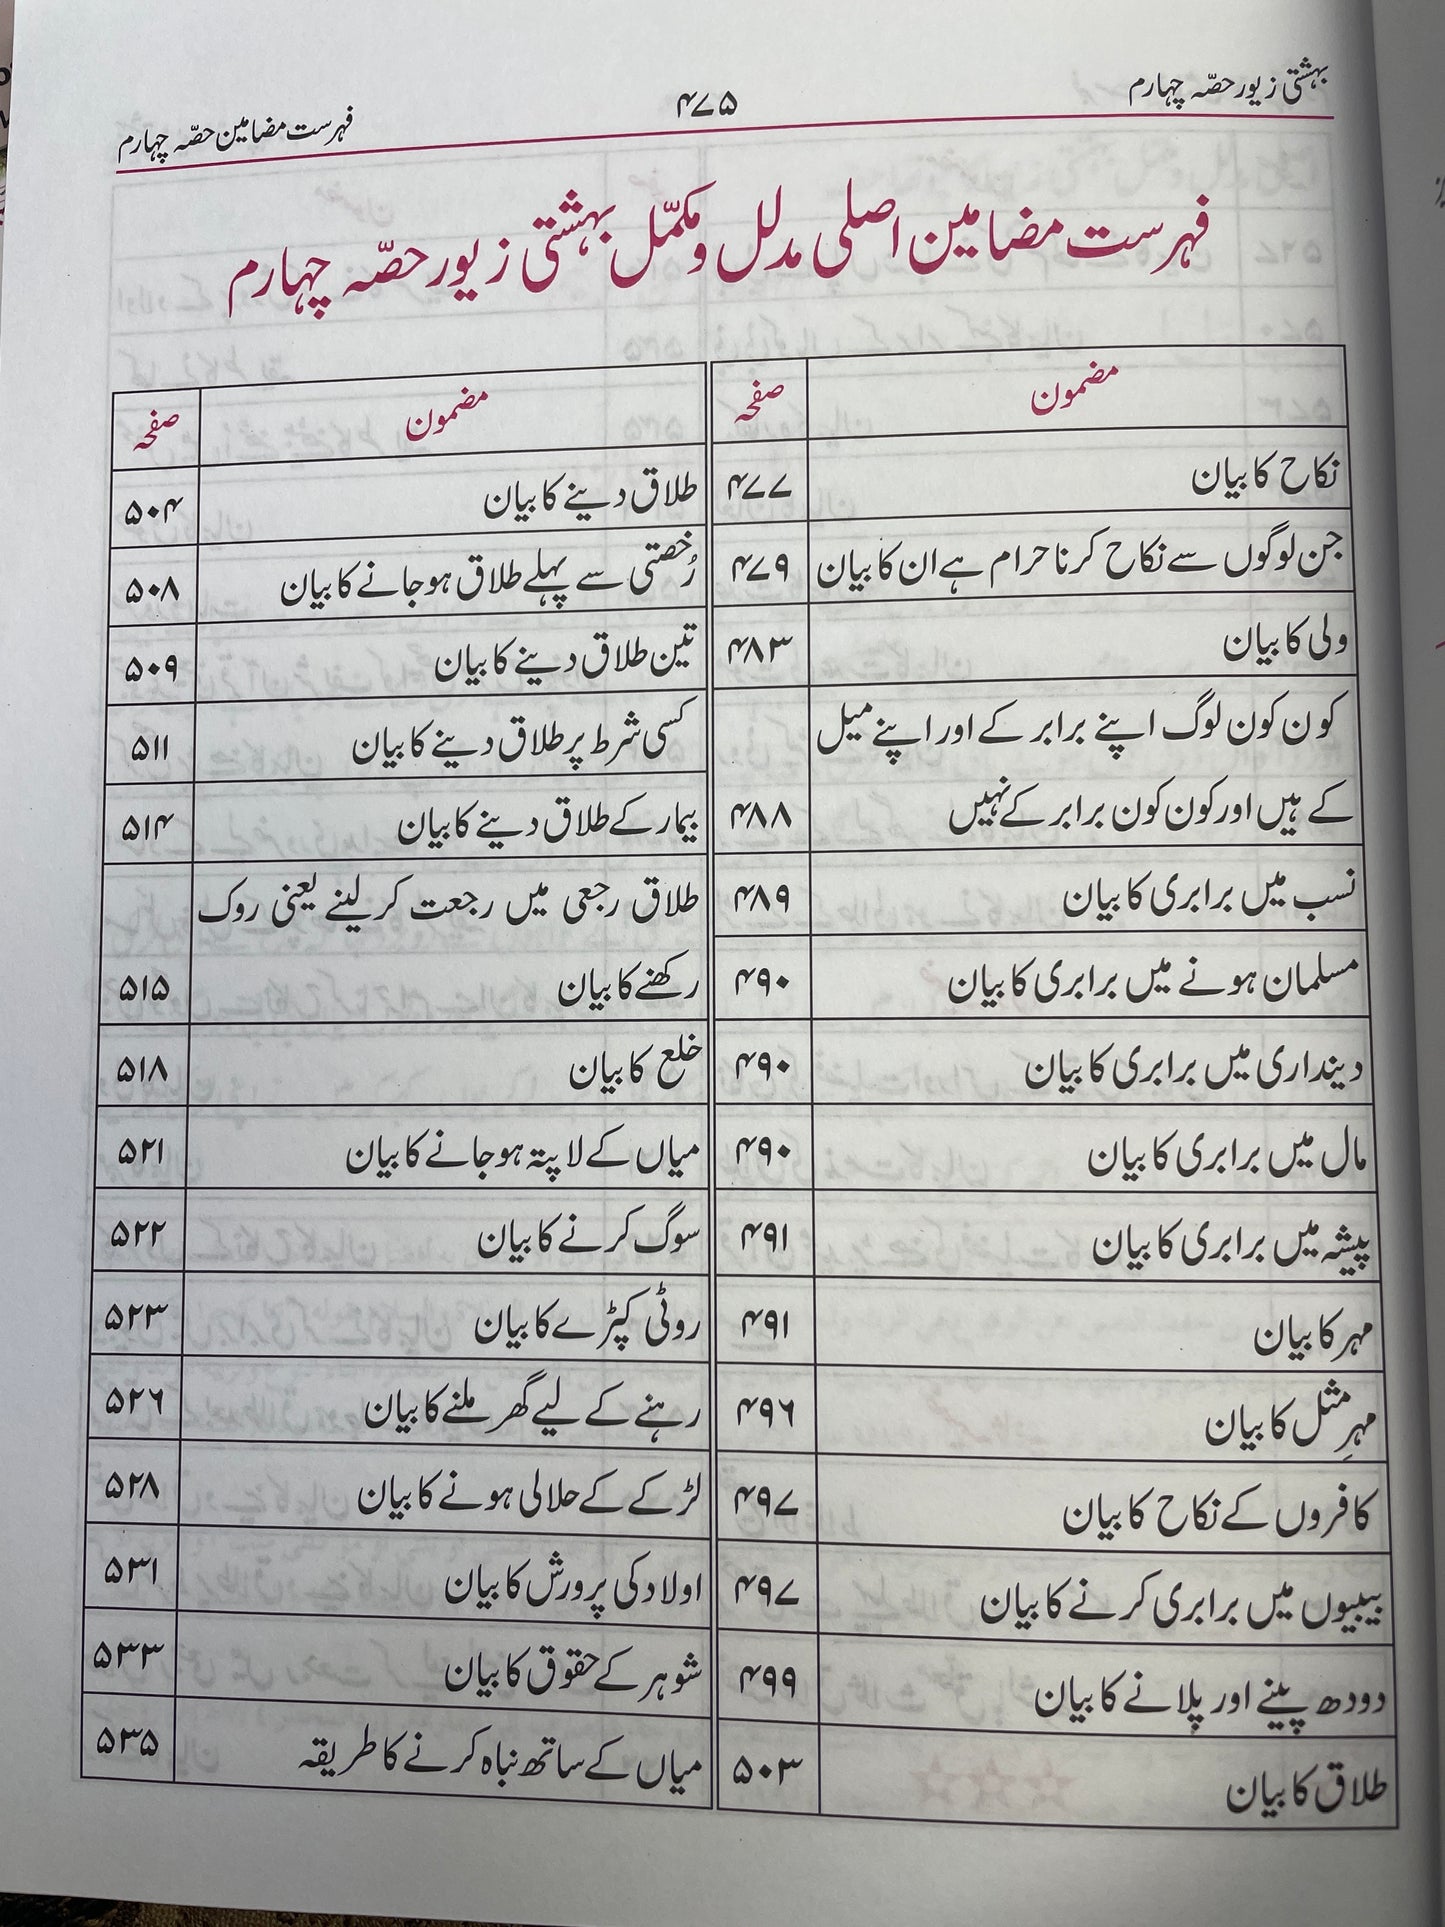 بہشتی زیور حصّہ چہارم ۴۷۵ فہرست مضامین حصّہ چہارم
فہرست مضامین اصلی مدلل و مکمّل بہشتی زیور حصّہ چہارم
مضمون صفحہ
نکاح کا بیان ۴۷۷
جن لوگوں سے نکاح کرنا حرام ہے ان کا بیان ۴۷۹
ولی کا بیان ۴۸۳
کون کون لوگ اپنے برابر کے اور اپنے میل
کے ہیں اور کون کون برابر کے نہیں ۴۸۸
نسب میں برابری کا بیان ۴۸۹
مسلمان ہونے میں برابری کا بیان ۴۹۰
دینداری میں برابری کا بیان ۴۹۰
مال میں برابری کا بیان ۴۹۰
پیشہ میں برابری کا بیان ۴۹۱
مہر کا بیان ۴۹۱
مہرِ مثل کا بیان ۴۹۶
کافروں کے نکاح کا بیان ۴۹۷
بیبیوں میں برابری کرنے کا بیان ۴۹۷
دودھ پینے اور پلانے کا بیان ۴۹۹
طلاق کا بیان ۵۰۳
مضمون صفحہ
طلاق دینے کا بیان ۵۰۴
رُخصتی سے پہلے طلاق ہو جانے کا بیان ۵۰۸
تین طلاق دینے کا بیان ۵۰۹
کسی شرط پر طلاق دینے کا بیان ۵۱۱
بیمار کے طلاق دینے کا بیان ۵۱۴
طلاق رجعی میں رجعت کر لینے یعنی روک
رکھنے کا بیان ۵۱۵
خلع کا بیان ۵۱۸
میاں کے لاپتہ ہو جانے کا بیان ۵۲۱
سوگ کرنے کا بیان ۵۲۲
روٹی کپڑے کا بیان ۵۲۳
رہنے کے لیے گھر ملنے کا بیان ۵۲۶
لڑکے کے حلالی ہونے کا بیان ۵۲۸
اولاد کی پرورش کا بیان ۵۳۱
شوہر کے حقوق کا بیان ۵۳۳
میاں کے ساتھ نباہ کرنے کا طریقہ ۵۳۵